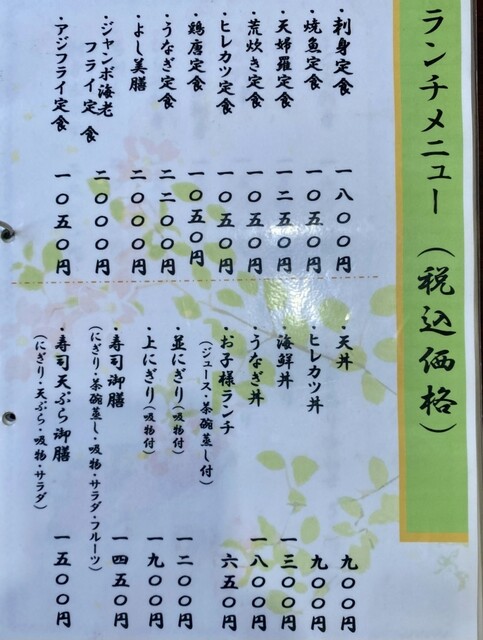 ランチメニュー（税込価格）
・刺身定食 一八〇〇円
・焼魚定食 一〇五〇円
・天婦羅定食 一二五〇円
・荒炊き定食 一〇五〇円
・ヒレカツ定食 一〇五〇円
・鶏唐定食 一〇五〇円
・うなぎ定食 二二〇〇円
・よし美膳 二〇〇〇円
・ジャンボ海老
フライ定食 二〇〇〇円
・アジフライ定食 一〇五〇円
・天丼 九〇〇円
・ヒレカツ丼 九〇〇円
・海鮮丼 一三〇〇円
・うなぎ丼 一八〇〇円
・お子様ランチ 六五〇円
（ジュース・茶碗蒸し付）
・並にぎり（吸物付） 一二〇〇円
・上にぎり（吸物付） 一九〇〇円
・寿司御膳 一四五〇円
（にぎり・茶碗蒸し・吸物・サラダ・フルーツ）
・寿司天ぷら御膳 一五〇〇円
（にぎり・天ぷら・吸物・サラダ）